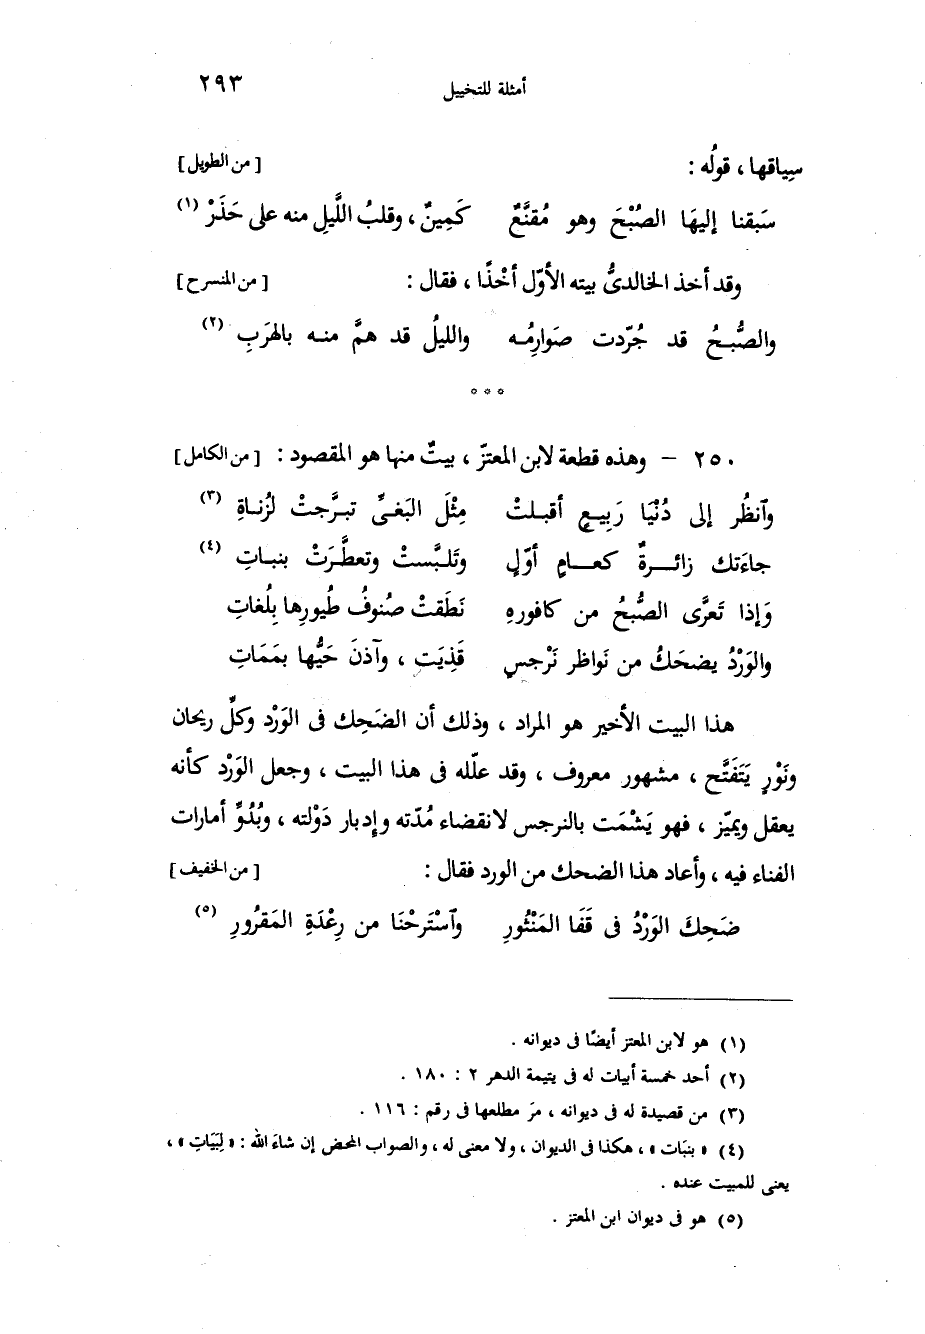 أمثلة للتخييل ٢٩٣
سِياقها ، قولُه : [ من الطويل ]
سَبقنا إليهَا الصُبْحَ وهو مُقنَّعٌ كَمِينٌ ، وقلبُ اللَّيلِ منه على حَذَرْ (١)
وقد أخذ الخالدىُّ بيته الأوّل أخْذًا ، فقال : [ من المنسرح ]
والصُّبحُ قد جُرّدت صَوارِمُه والليلُ قد همَّ منه بالهَربِ (٢)
* * *
٢٥٠ – وهذه قطعة لابن المعتزّ ، بيتٌ منها هو المقصود : [ من الكامل ]
وٱنظُر إلى دُنْيَا رَبِيعٍ أقبلتْ مِثْلَ البَغىِّ تبرَّجتْ لزُناةِ (٣)
جاءَتك زائرةٌ كعامٍ أوّلٍ وتَلبَّستْ وتعطَّرَتْ بنباتِ (٤)
وَإذا تَعرَّى الصُّبحُ من كافورهِ نَطَقتْ صُنوفُ طُيورِها بِلُغاتِ
والوَرْدُ يضحَكُ من نَواظر نَرْجسٍ قَذِيَتِ ، وآذنَ حَيُّها بمَمَاتِ
هذا البيت الأخير هو المراد ، وذلك أن الضَحِك فى الوَرْد وكلِّ ريحان
ونَوْرٍ يَتَفَتَّح ، مشهور معروف ، وقد علّله فى هذا البيت ، وجعل الوَرْد كأنه
يعقل ويميّز ، فهو يَشْمَت بالنرجس لانقضاء مُدّته وإدبار دَوْلته ، وبُدُوِّ أمارات
الفناء فيه ، وأعاد هذا الضحك من الورد فقال : [ من الخفيف ]
ضَحِكَ الوَرْدُ فى قَفَا المَنْثُورِ وٱسْتَرحْنَا من رِعْدَةِ المَقرُورِ (٥)
(١) هو لابن المعتز أيضًا فى ديوانه .
(٢) أحد خمسة أبيات له فى يتيمة الدهر ٢ : ١٨٠ .
(٣) من قصيدة له فى ديوانه ، مرّ مطلعها فى رقم : ١١٦ .
(٤) « بنبَات » ، هكذا فى الديوان ، ولا معنى له ، والصواب المحض إن شاءَ الله : « لِبَيَاتِ » ،
يعنى للمبيت عنده .
(٥) هو فى ديوان ابن المعتز .